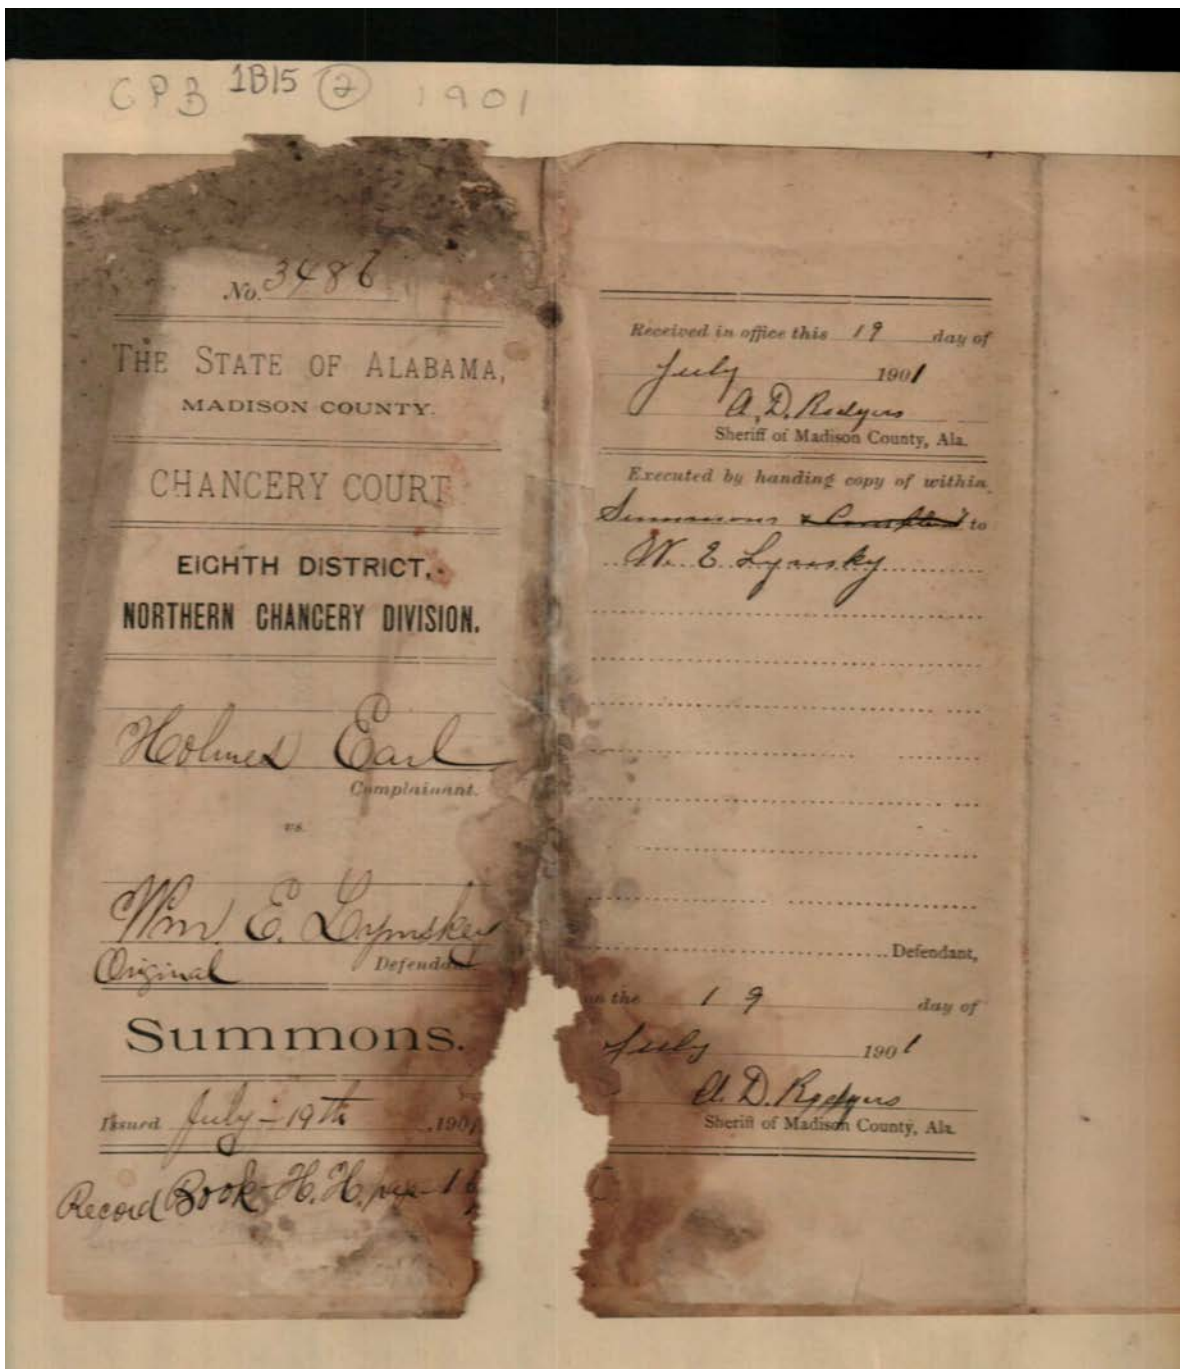 CPB 1B15 2 1901
No. 3486
THE STATE OF ALABAMA,
MADISON COUNTY.
CHANCERY COURT
EIGHTH DISTRICT,
NORTHERN CHANCERY DIVISION.
Holmes Earl
Complainant.
vs.
Wm. E. Lymsky
Original Defendant
Summons.
Issued July - 19th, 1901
Record Book H. H.
Received in office this 19 day of
July 1901
A. D. Rodgers
Sheriff of Madison County, Ala.
Executed by handing copy of within
Summons & Complt to
W. E. Lymsky
Defendant,
on the 19 day of
July 1901
A. D. Rodgers
Sheriff of Madison County, Ala.